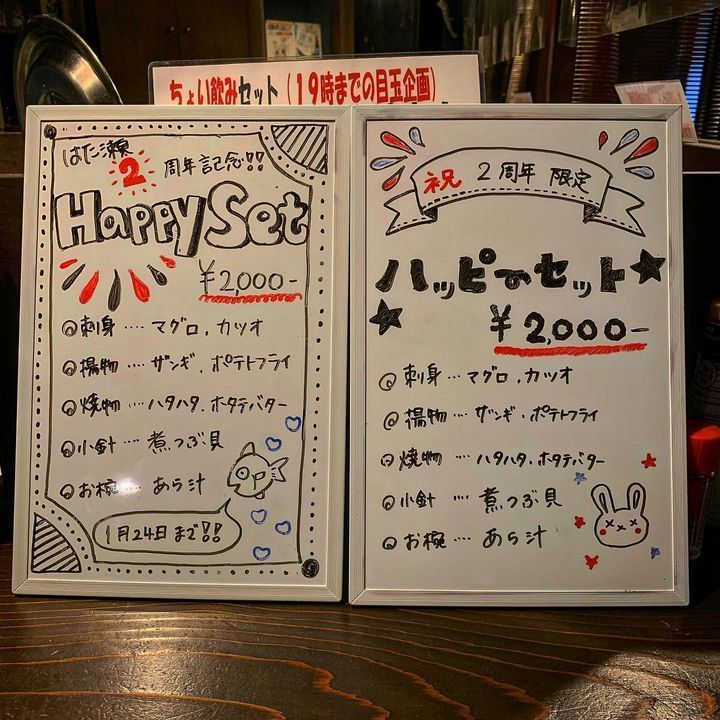 ちょい飲みセット(19時までの目玉企画)
はた瀬
2周年記念!!
Happy Set
¥2,000-
刺身‥‥マグロ、カツオ
揚物‥‥ザンギ、ポテトフライ
焼物‥‥ハタハタ、ホタテバター
小針‥‥煮つぶ貝
お椀‥‥あら汁
1月24日まで!!
祝 2周年 限定
ハッピーセット
¥2,000-
刺身…マグロ、カツオ
揚物…ザンギ、ポテトフライ
焼物…ハタハタ、ホタテバター
小針…煮つぶ貝
お椀…あら汁